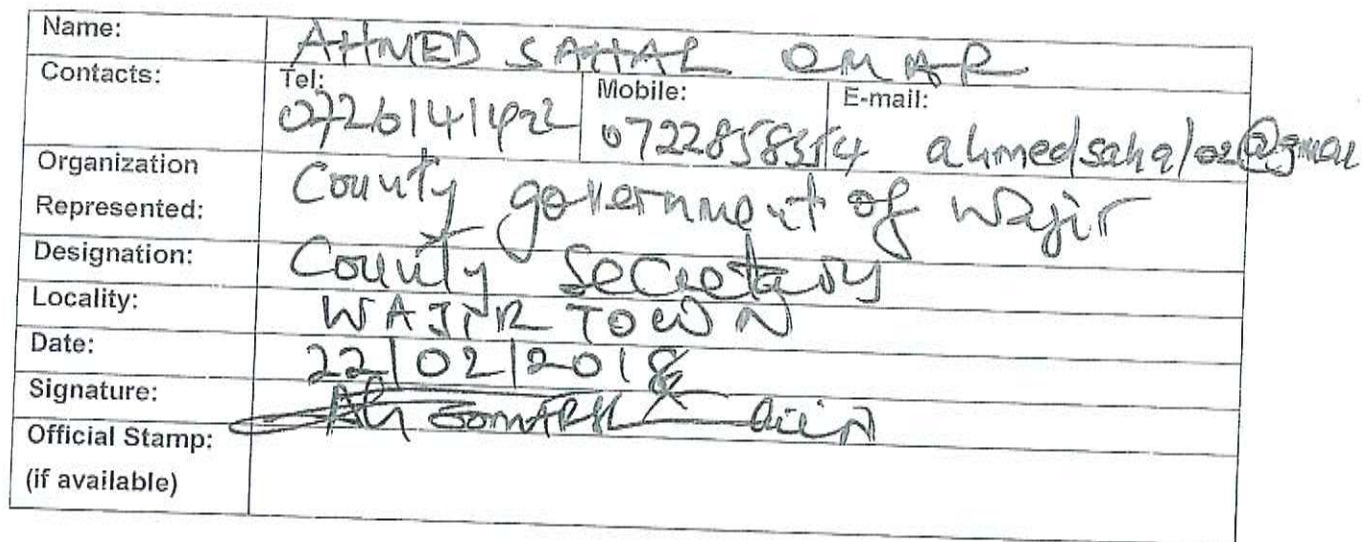 Name: AHMED SAHAL OMAR
Contacts: Tel: Mobile: E-mail:
0726141422 0722858514 ahmedsahal02@gmail
Organization
Represented: County government of Wajir
Designation: County Secretary
Locality: WAJIR TOWN
Date: 22/02/2018
Signature:
Official Stamp:
(if available)